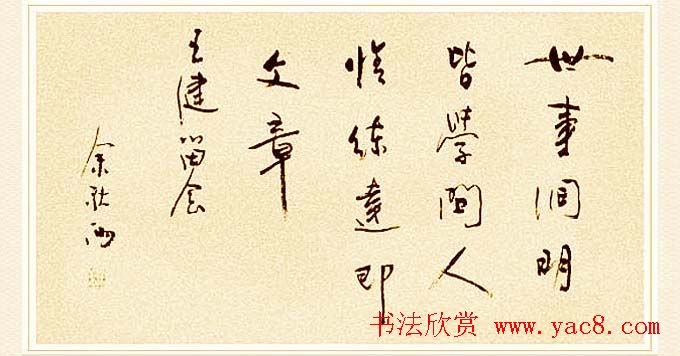 世事洞明
皆學問人
情練達即
文章
王健留念
余秋雨
书法欣赏 www.yac8.com